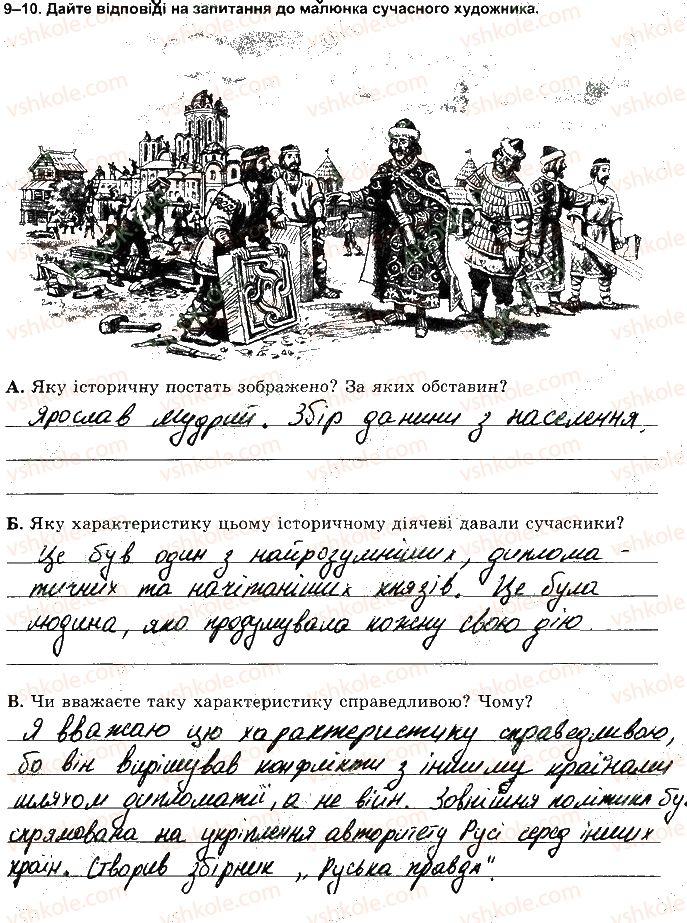 9–10. Дайте відповіді на запитання до малюнка сучасного художника.
А. Яку історичну постать зображено? За яких обставин?
Ярослав Мудрий. Збір данини з населення.
Б. Яку характеристику цьому історичному діячеві давали сучасники?
Це був один з найрозумніших, диплома-
тичних та начітаніших князів. Це була
людина, яка продумувала кожну свою дію.
В. Чи вважаєте таку характеристику справедливою? Чому?
Я вважаю цю характеристику справедливою,
бо він вирішував конфлікти з іншими країнами
шляхом дипломатії, а не війн. Зовнішня політика бу
спрямована на укріплення авторитету Русі серед інших
країн. Створив збірник „Руська правда".
vshkole.com